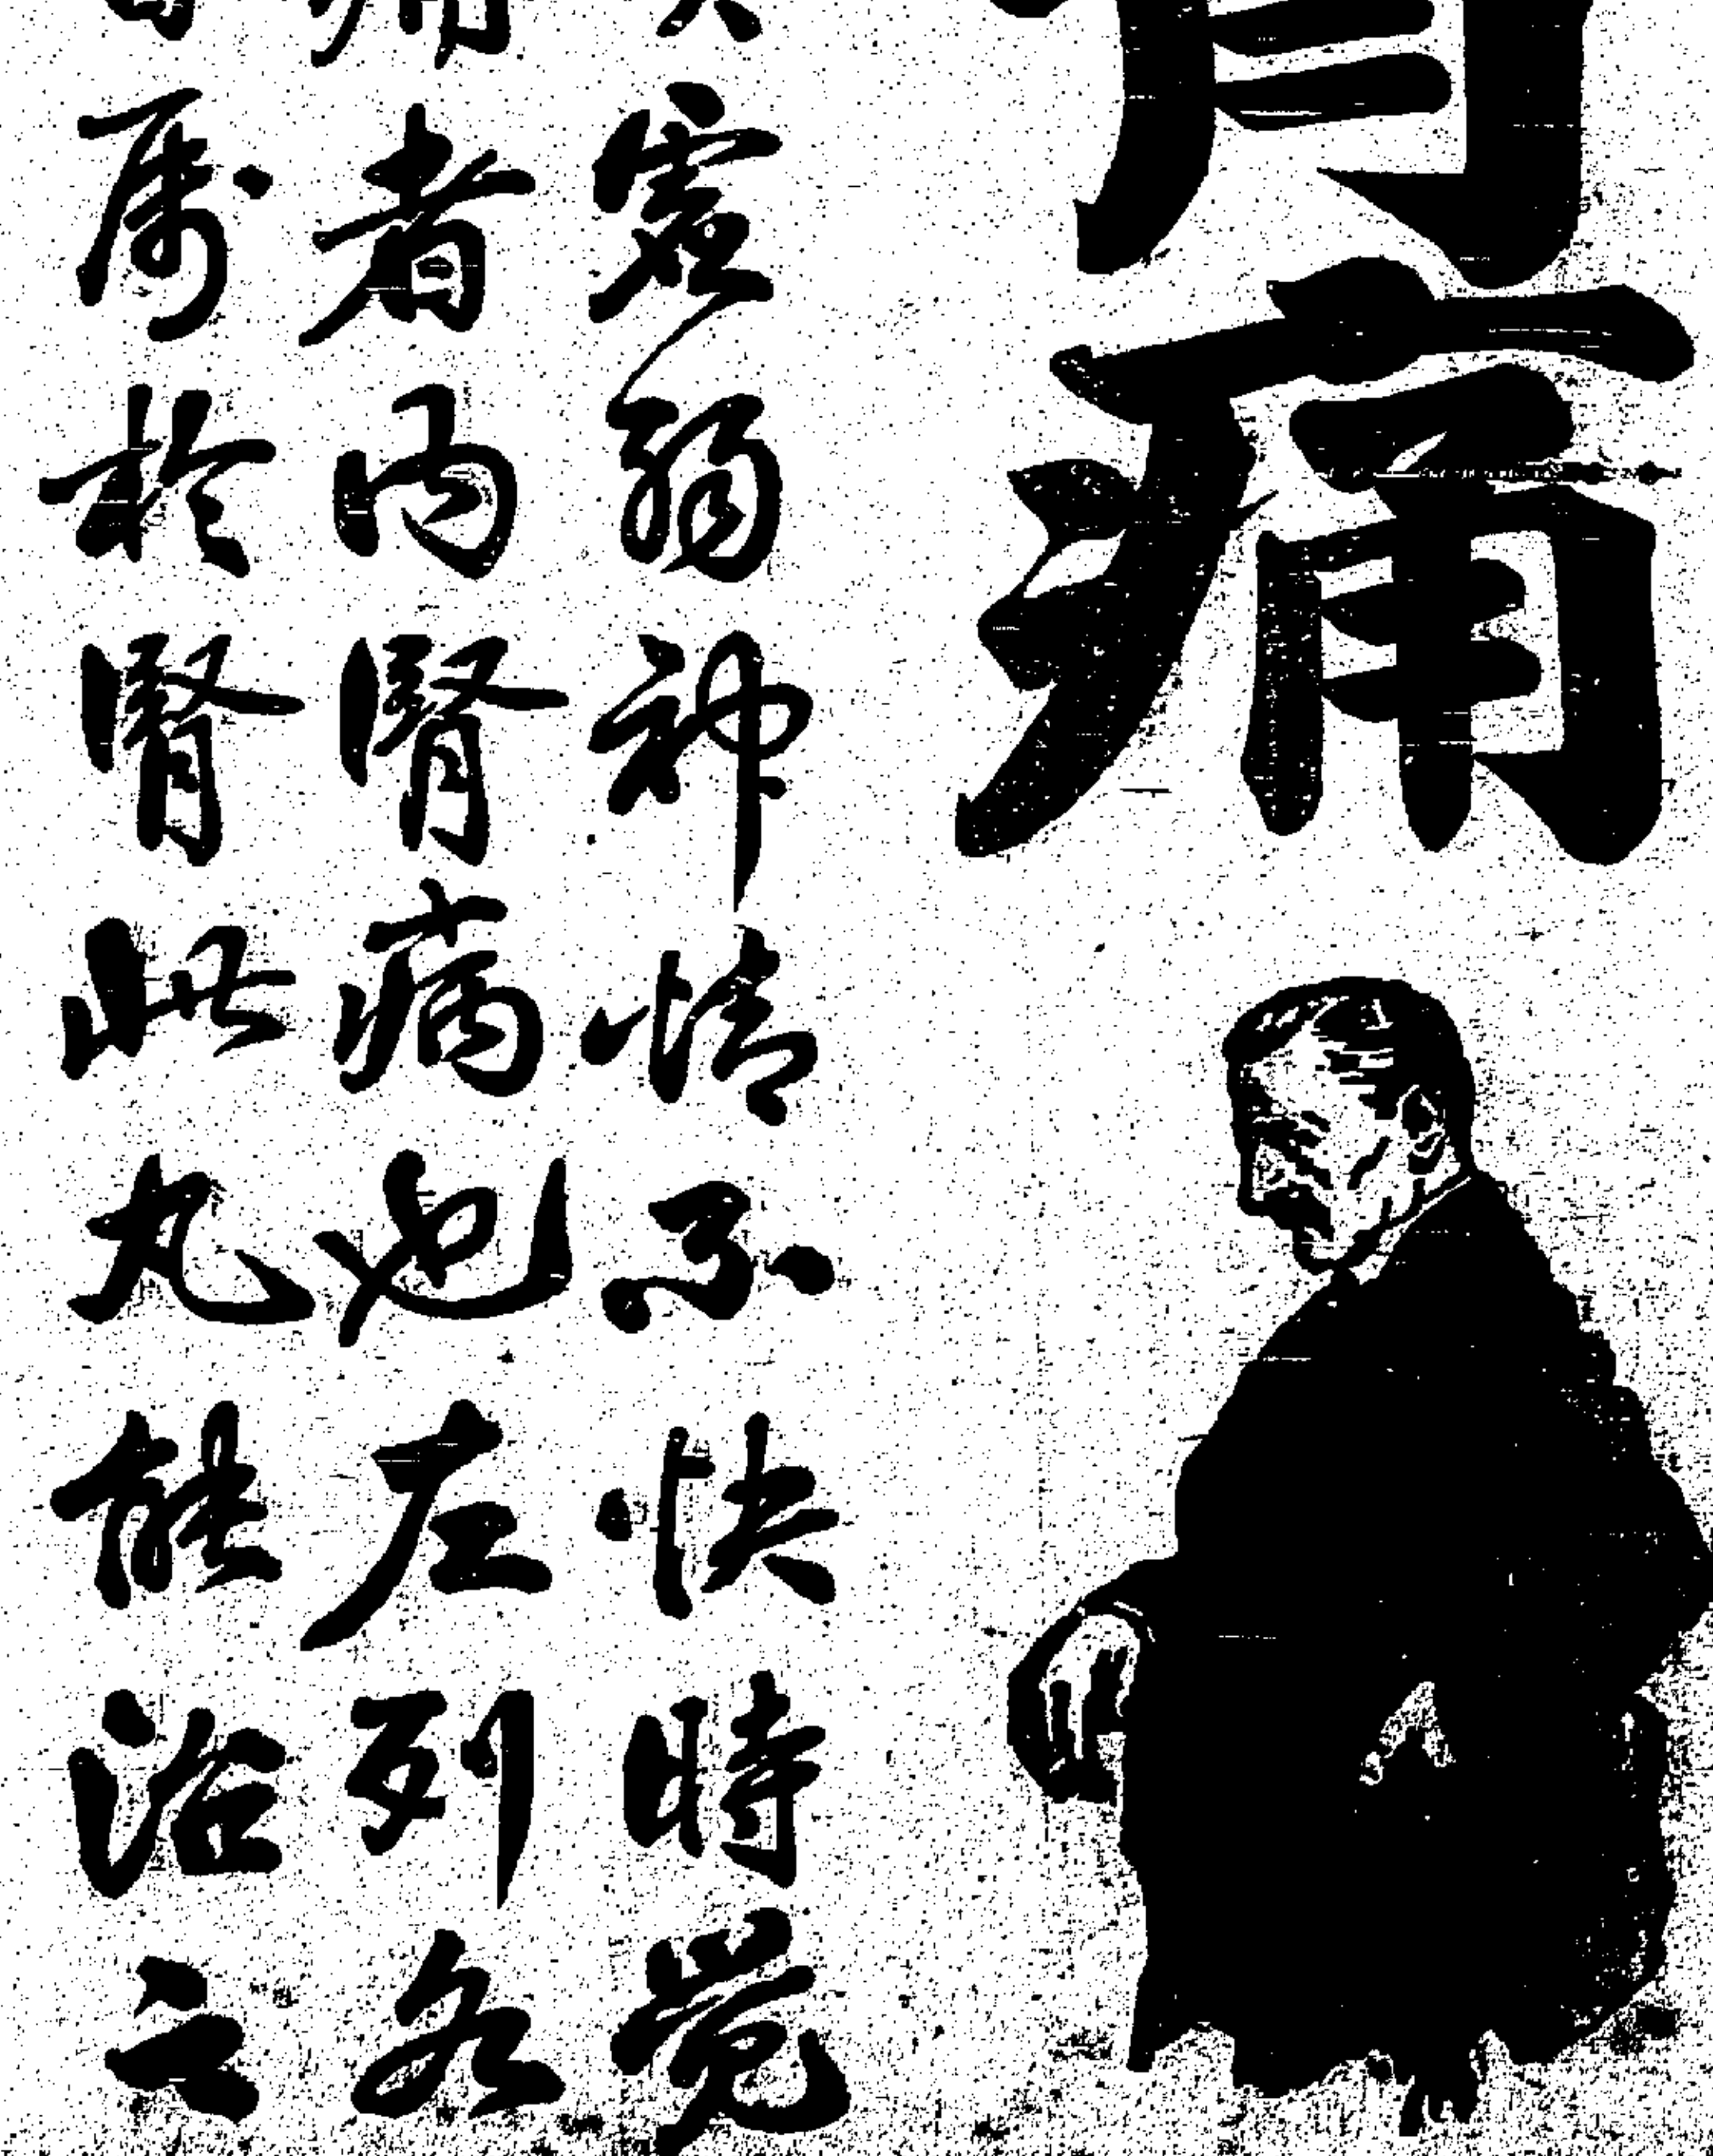 痛
虛弱神情不快時覺
者內腎病也左列各
屬於腎此丸能治之